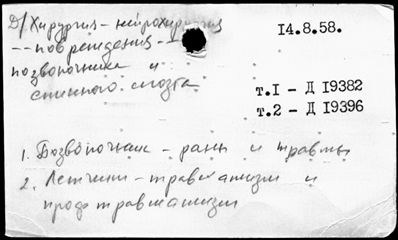 Д/Хирургия - нейрохирургия
-- повреждения --
позвоночника и
спинного мозга
14.8.58.
т.1 - Д 19382
т.2 - Д 19396
1. Позвоночник - раны и травмы
2. Летчики - травматизм и
проф травматизм